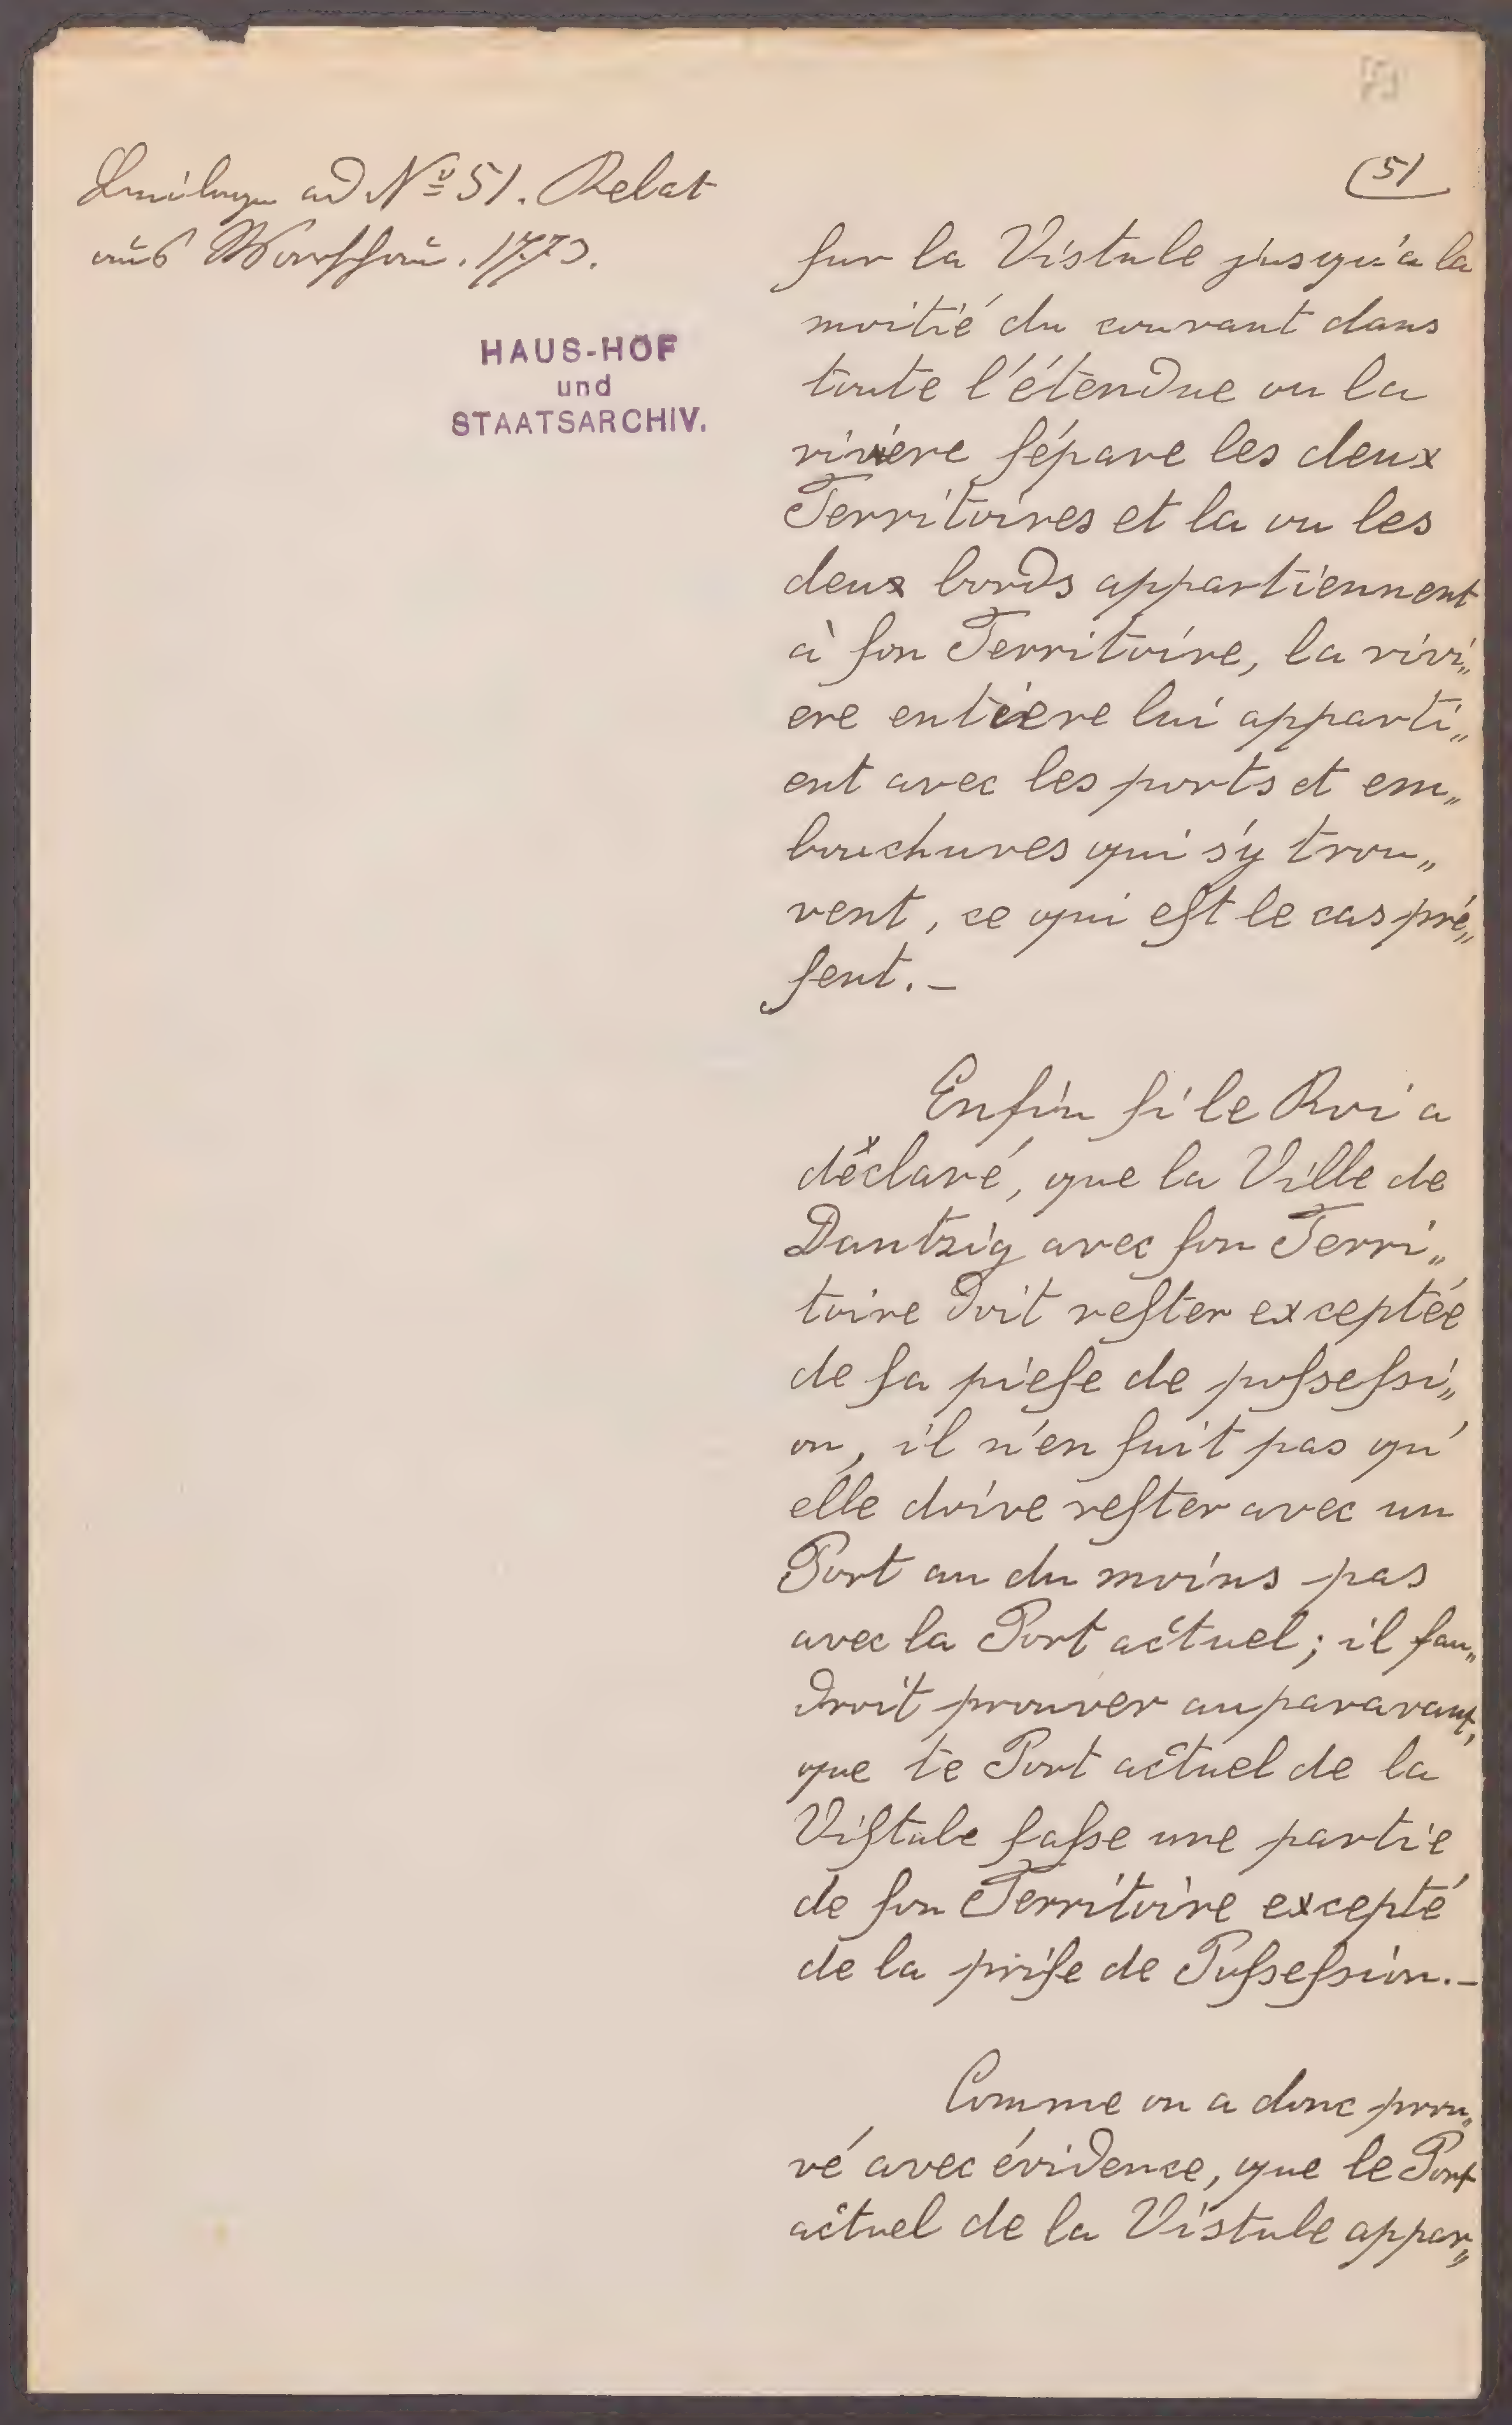 51
Beilagen ad Nº 51. Relat
aus Warschau. 1773.
HAUS-HOF
und
STAATSARCHIV.
sur la Vistule jusqu'a la
moitié du courant dans
toute l'étendue ou la
riviere sépare les deux
Territoires et la ou les
deux bords appartiennent
à son Territoire, la rivi„
ere entiere lui apparti„
ent avec les ports et em„
bouchures qui s'y trou„
vent, ce qui est le cas pré„
sent. –
Enfin si le Roi a
déclaré, que la Ville de
Dantzig avec son Terri„
toire doit rester exceptée
de sa priese de possessi„
on, il n'en suit pas qu'
elle doive rester avec un
Port au du moins pas
avec la Port actuel; il fau„
droit prouver auparavant,
que le Port actuel de la
Vistule fasse une partie
de son Territoire excepté
de la prise de Possession. –
Comme on a donc prou„
vé avec évidence, que le Port
actuel de la Vistule appar„